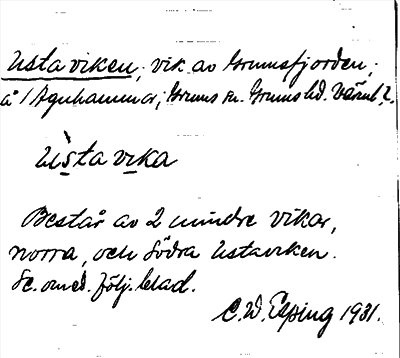 Ustaviken, vik av Grumsfjorden,
å 1 Agnhammar; Grums sn. Grums hd. Värml.
Ùstavika
Består av 2 mindre vikar,
norra, och södra Ustaviken.
Se omed. följ. blad.
C. W. Esping 1931.